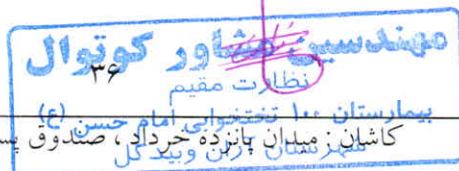 مهندسین مشاور کوتوال
۳۶
نظارت مقیم
بیمارستان ۱۰۰ تختخوابی امام حسن (ع)
کاشان : میدان پانزده خرداد ، صندوق پس
شهرستان آران وبیدگل